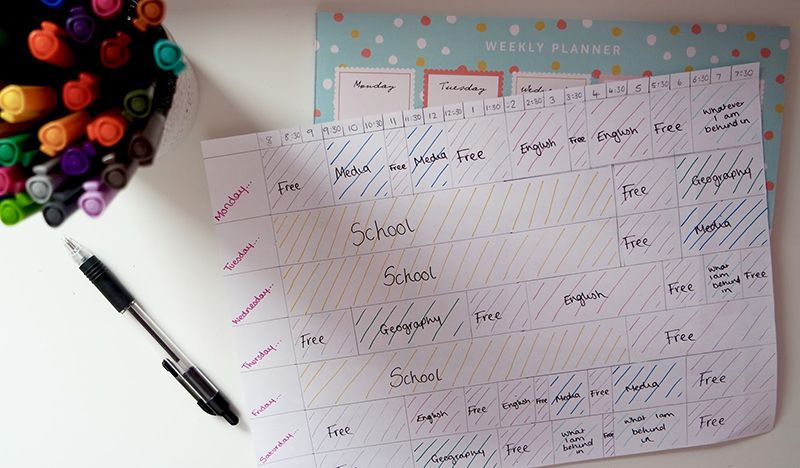 WEEKLY PLANNER
Monday Tuesday
8 8:30 9 9:30 10 10:30 11 11:30 12 12:30 1 1:30 2 2:30 3 3:30 4 4:30 5 5:30 6 6:30 7 7:30
Monday... Free Media Free Media Free English Free English Free Whatever
I am
behind in
Tuesday... School Free Geography
Wednesday... School Free Media
Thursday... Free Geography Free English Free what
I am
behind
in Free
Friday... School Free
Saturday... Free English Free English Free Media Free Media Free
Free Geography Free what
I am
behind
in Free what I am
behind
in Free